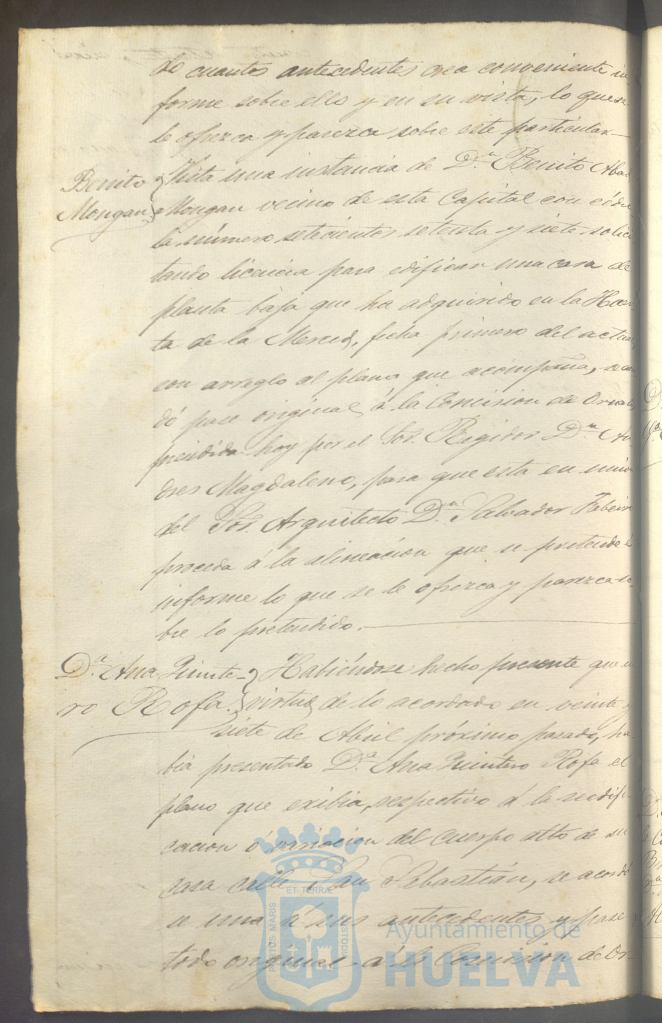 de cuantos antecedentes crea conveniente in
forme sobre ello y en su vista, lo que se
le ofrezca y parezca sobre este particular.—
Benito Mongan
Vista una instancia de D.n Benito Abad
Mongan vecino de esta Capital con cédu
la número setecientos setenta y siete solici
tando licencia para edificar una casa de
planta baja que ha adquirido en la Huer
ta de la Merced, fecha primero del actual,
con arreglo al plano, que acompaña, acor
dó pase original, á la Comision de Ornato
presidida hoy por el Sor. Regidor D.n An
dres Magdaleno, para que esta en union
del Sor. Arquitecto D.n Salvador
proceda á la alineacion que se pretende é
informe lo que se le ofrezca y parezca so
bre lo pretendido.—
D.ª Ana Quinte-
ro Rofa.
Habiéndose hecho presente que en
virtud de lo acordado en veinte y
siete de Abril próximo pasado, ha
bia presentado D.ª Ana Quintero Rofa el
plano que exibia, respectivo á la modifi
cacion ó variacion del cuerpo alto de su
casa calle San Sebastián, se acordó
se una á sus antecedentes y pase
todo original á la Comision de Or-
PORTUS MARIS
ET TERRÆ
CUSTODIA
Ayuntamiento de
HUELVA